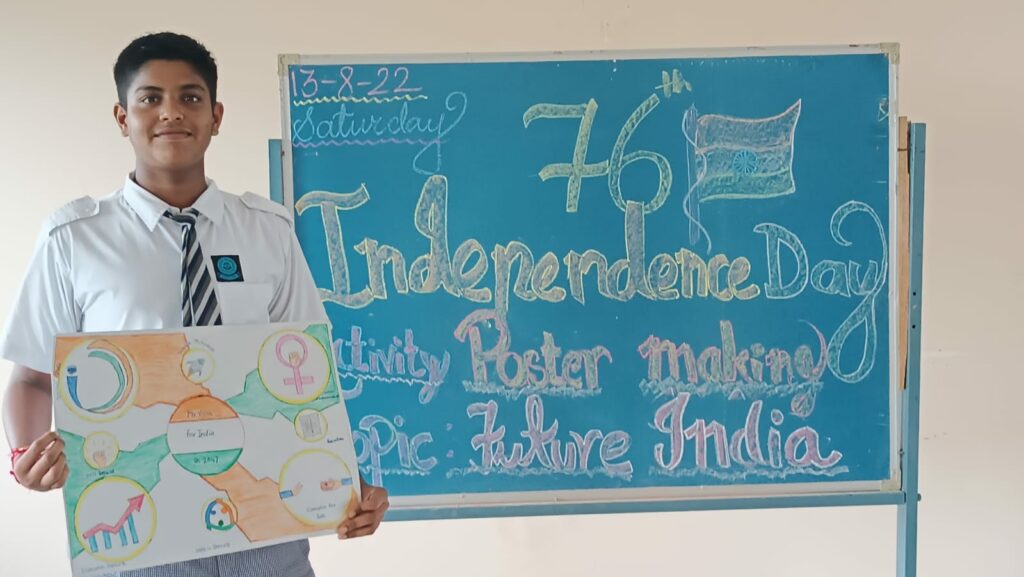 13-8-22
Saturday
76th
Independence Day
Activity Poster making
Topic: Future India
My Vision
For India
in 2047
Education